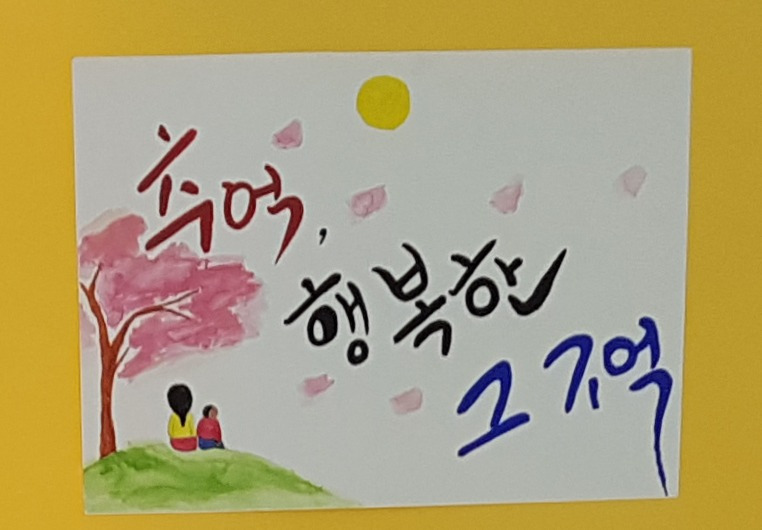 추억,
행복한
그 기억